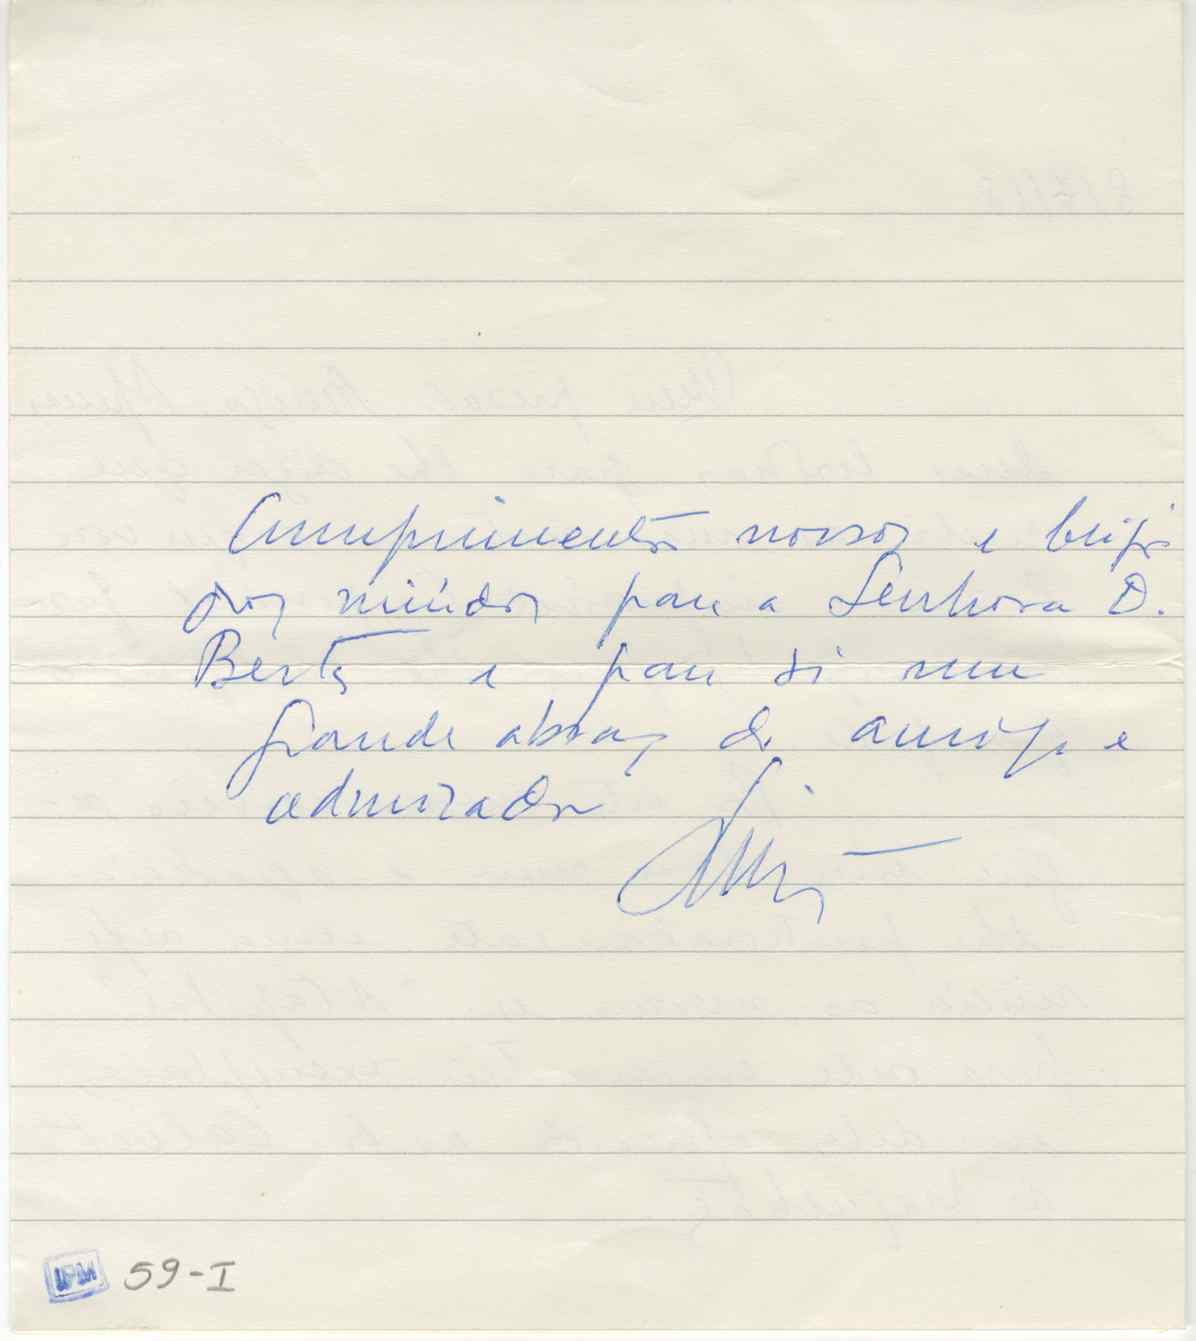 Cumprimentos nossos e beijos
dos miúdos para a Senhora D.
Berta e para si um
grande abraço do amigo e
admirador
59-I